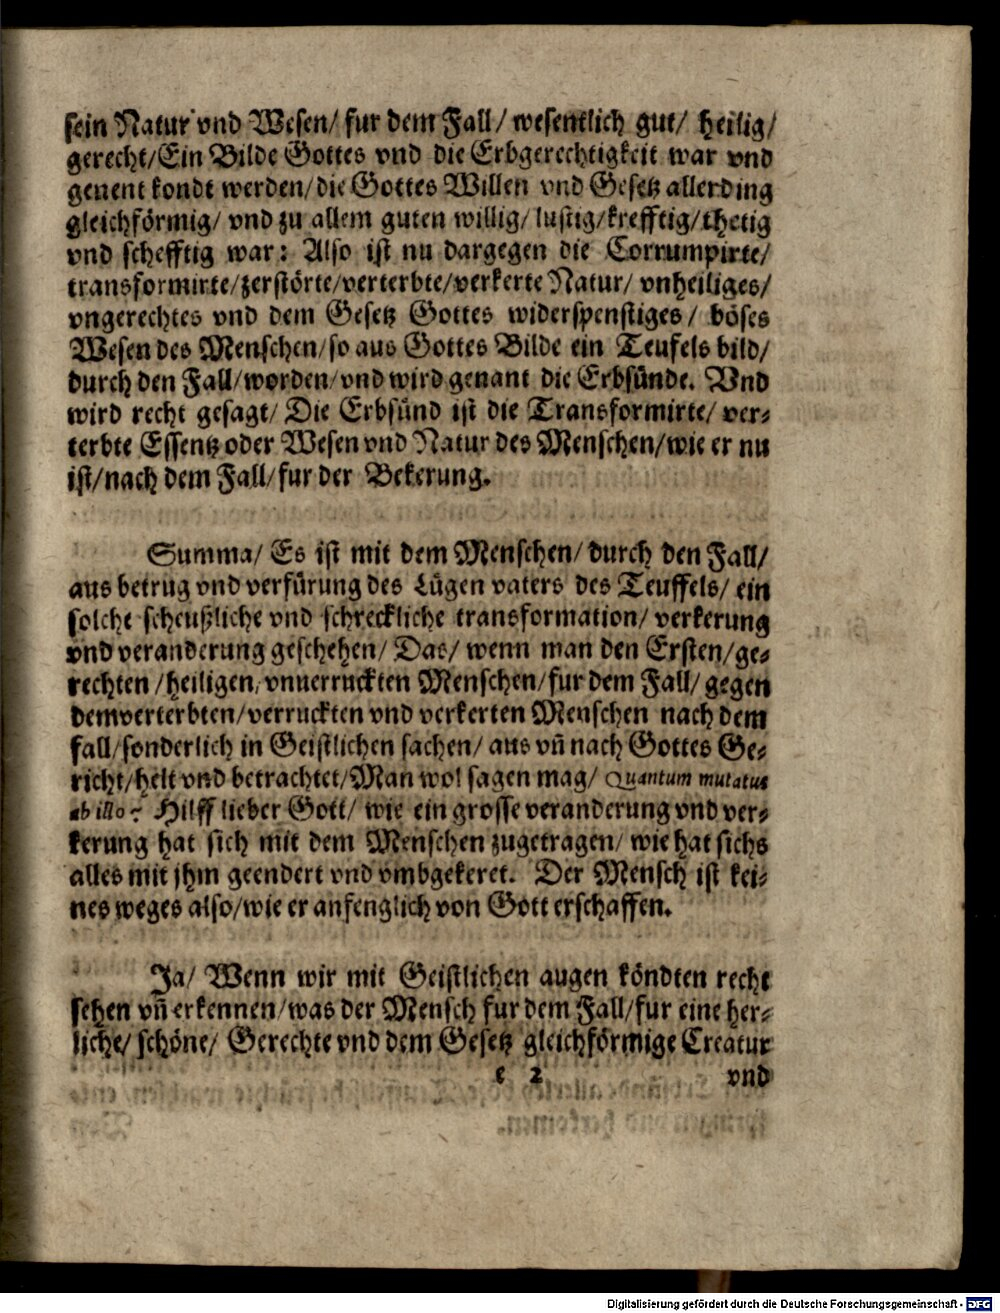 sein Natur vnd Wesen/ fur dem Fall/ wesentlich gut/ heilig/
gerecht/Ein Bilde Gottes vnd die Erbgerechtigkeit war vnd
genent kondt werden/die Gottes Willen vnd Gesetz allerding
gleichförmig/ vnd zu allem guten willig/ lustig/krefftig/thetig
vnd schefftig war: Also ist nu dargegen die Corrumpirte/
transformirte/zerstörte/verterbte/verkerte Natur/ vnheiliges/
vngerechtes vnd dem Gesetz Gottes widerspenstiges/ böses
Wesen des Menschen/so aus Gottes Bilde ein Teufels bild/
durch den Fall/worden/vnd wird genant die Erbsünde. Vnd
wird recht gesagt/ Die Erbsünd ist die Transformirte/ ver⸗
terbte Essentz oder Wesen vnd Natur des Menschen/wie er nu
ist/nach dem Fall/fur der Bekerung.
Summa/ Es ist mit dem Menschen/ durch den Fall/
aus betrug vnd verfürung des Lügen vaters des Teuffels/ ein
solche scheußliche vnd schreckliche transformation/ verkerung
vnd veranderung geschehen/ Das/ wenn man den Ersten/ge⸗
rechten/heiligen, vnuerruckten Menschen/fur dem Fall/ gegen
dem verterbten/verruckten vnd verkerten Menschen nach dem
fall/sonderlich in Geistlichen sachen/ aus vn̄ nach Gottes Ge⸗
richt/helt vnd betrachtet/Man wol sagen mag/ Quantum mutatus
ab illo? Hilff lieber Gott/ wie ein grosse veranderung vnd ver⸗
kerung hat sich mit dem Menschen zugetragen/ wie hat sichs
alles mit jhm geendert vnd vmbgekeret. Der Mensch ist kei⸗
nes weges also/wie er anfenglich von Gott erschaffen.
Ja/ Wenn wir mit Geistlichen augen köndten recht
sehen vn̄ erkennen/was der Mensch fur dem Fall/fur eine her⸗
liche/ schöne/ Gerechte vnd dem Gesetz gleichförmige Creatur
e 2 vnd
Digitalisierung gefördert durch die Deutsche Forschungsgemeinschaft - DFG